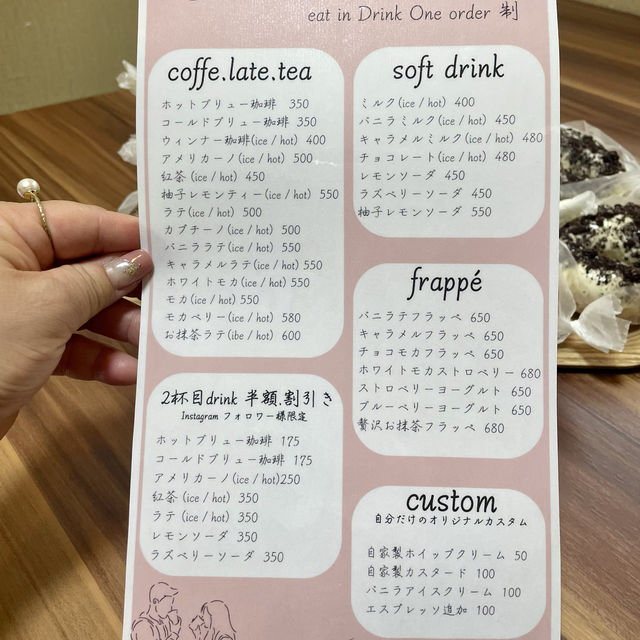 eat in Drink One order 制
coffe.late.tea
ホットブリュー珈琲 350
コールドブリュー珈琲 350
ウィンナー珈琲(ice / hot) 400
アメリカーノ(ice / hot) 500
紅茶 (ice / hot) 450
柚子レモンティー(ice / hot) 550
ラテ(ice / hot) 500
カプチーノ(ice / hot) 500
バニララテ(ice / hot) 550
キャラメルラテ(ice / hot) 550
ホワイトモカ(ice / hot) 550
モカ(ice / hot) 550
モカベリー(ice / hot) 580
お抹茶ラテ(ibe / hot) 600
2杯目drink 半額割引き
Instagram フォロワー様限定
ホットブリュー珈琲 175
コールドブリュー珈琲 175
アメリカーノ(ice / hot)250
紅茶 (ice / hot) 350
ラテ (ice / hot) 350
レモンソーダ 350
ラズベリーソーダ 350
soft drink
ミルク(ice / hot) 400
バニラミルク(ice / hot) 450
キャラメルミルク(ice / hot) 480
チョコレート(ice / hot) 480
レモンソーダ 450
ラズベリーソーダ 450
柚子レモンソーダ 550
frappé
バニラテフラッペ 650
キャラメルフラッペ 650
チョコモカフラッペ 650
ホワイトモカストロベリー 680
ストロベリーヨーグルト 650
ブルーベリーヨーグルト 650
贅沢お抹茶フラッペ 680
custom
自分だけのオリジナルカスタム
自家製ホイップクリーム 50
自家製カスタード 100
バニラアイスクリーム 100
エスプレッソ追加 100